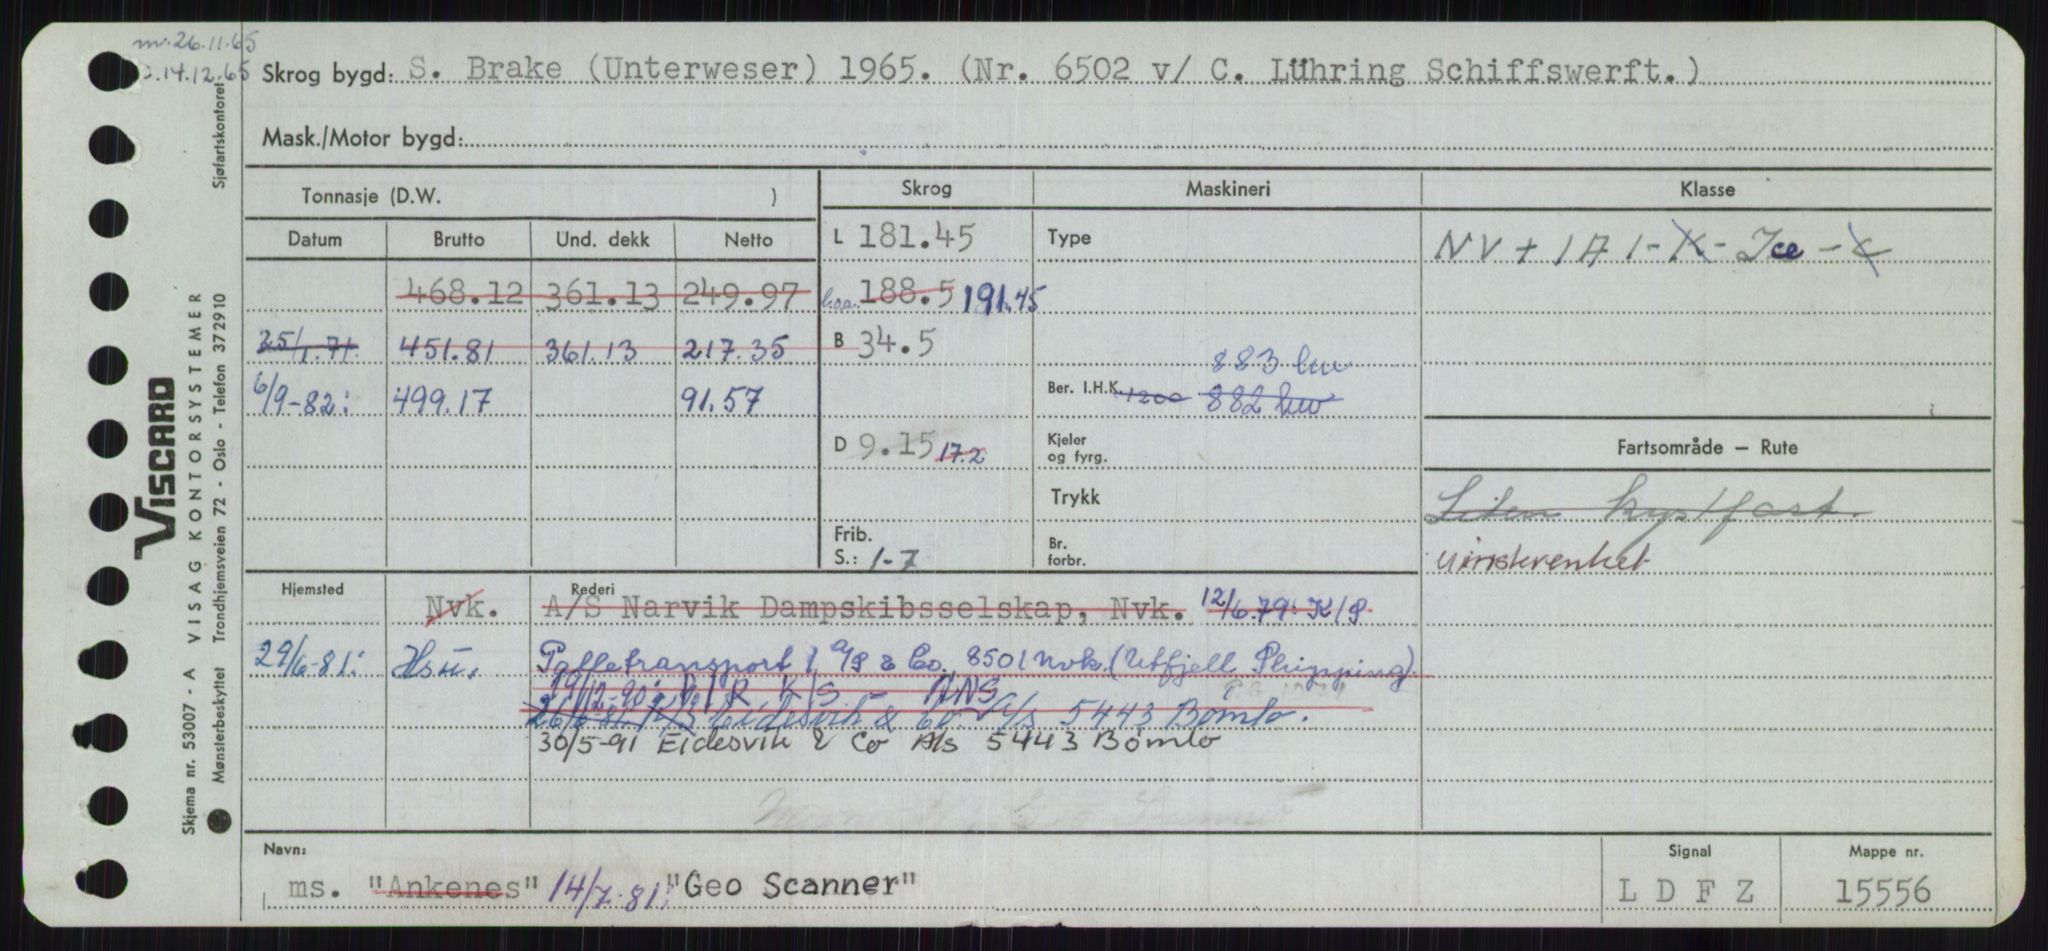 m. 26.11.65
14.12.65
Skrog bygd: S. Brake (Unterweser) 1965. (Nr. 6502 v/ C. Lühring Schiffswerft.)
Mask./Motor bygd:
Tonnasje (D.W. )
Skrog
Maskineri
Klasse
Datum Brutto Und. dekk Netto
L 181.45
Type
NV + 1A1 - K - Ice - C
468.12 361.13 249.97
l.o.a. 188.5 191.45
25/1.71. 451.81 361.13 217.35
B 34.5
883 kw
6/9-82: 499.17 91.57
Ber. I.H.K. 1200 882 kw
Fartsområde — Rute
D 9.15 17.2
Kjeler og fyrg.
Trykk
Liten kystfart.
Frib.
S.: 1-7
Br. forbr.
uinnskrenket
Hjemsted
Rederi
Nvk. A/S Narvik Dampskibsselskap, Nvk. 12/6.79: K/S
29/6-81: Hsu. Palletransport 1 A/S & Co. 8501 Nvk.
19/12-90: P/R K/S - ANS
26/6-81: Eidesvik & Co A/S 5443 Bømlo.
30/5-91 Eidesvik & Co A/s 5443 Bømlo
Navn:
ms. "Ankenes" 14/7.81: "Geo Scanner"
Signal
L D F Z
Mappe nr.
15556
VISCARD
Skjema nr. 53007 - A VISAG KONTORSYSTEMER
Mønsterbeskyttet Trondhjemsveien 72 - Oslo - Telefon 372910 Sjøfartskontoret